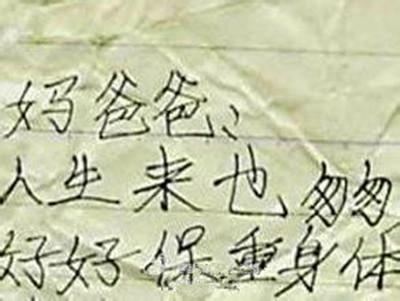 妈爸爸：
人生来也匆匆
好好保重身体